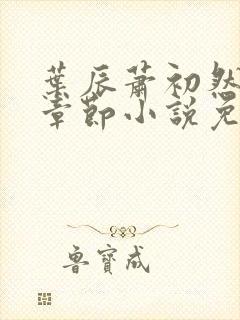 葉辰蕭初然
章節小說免
魯寶成